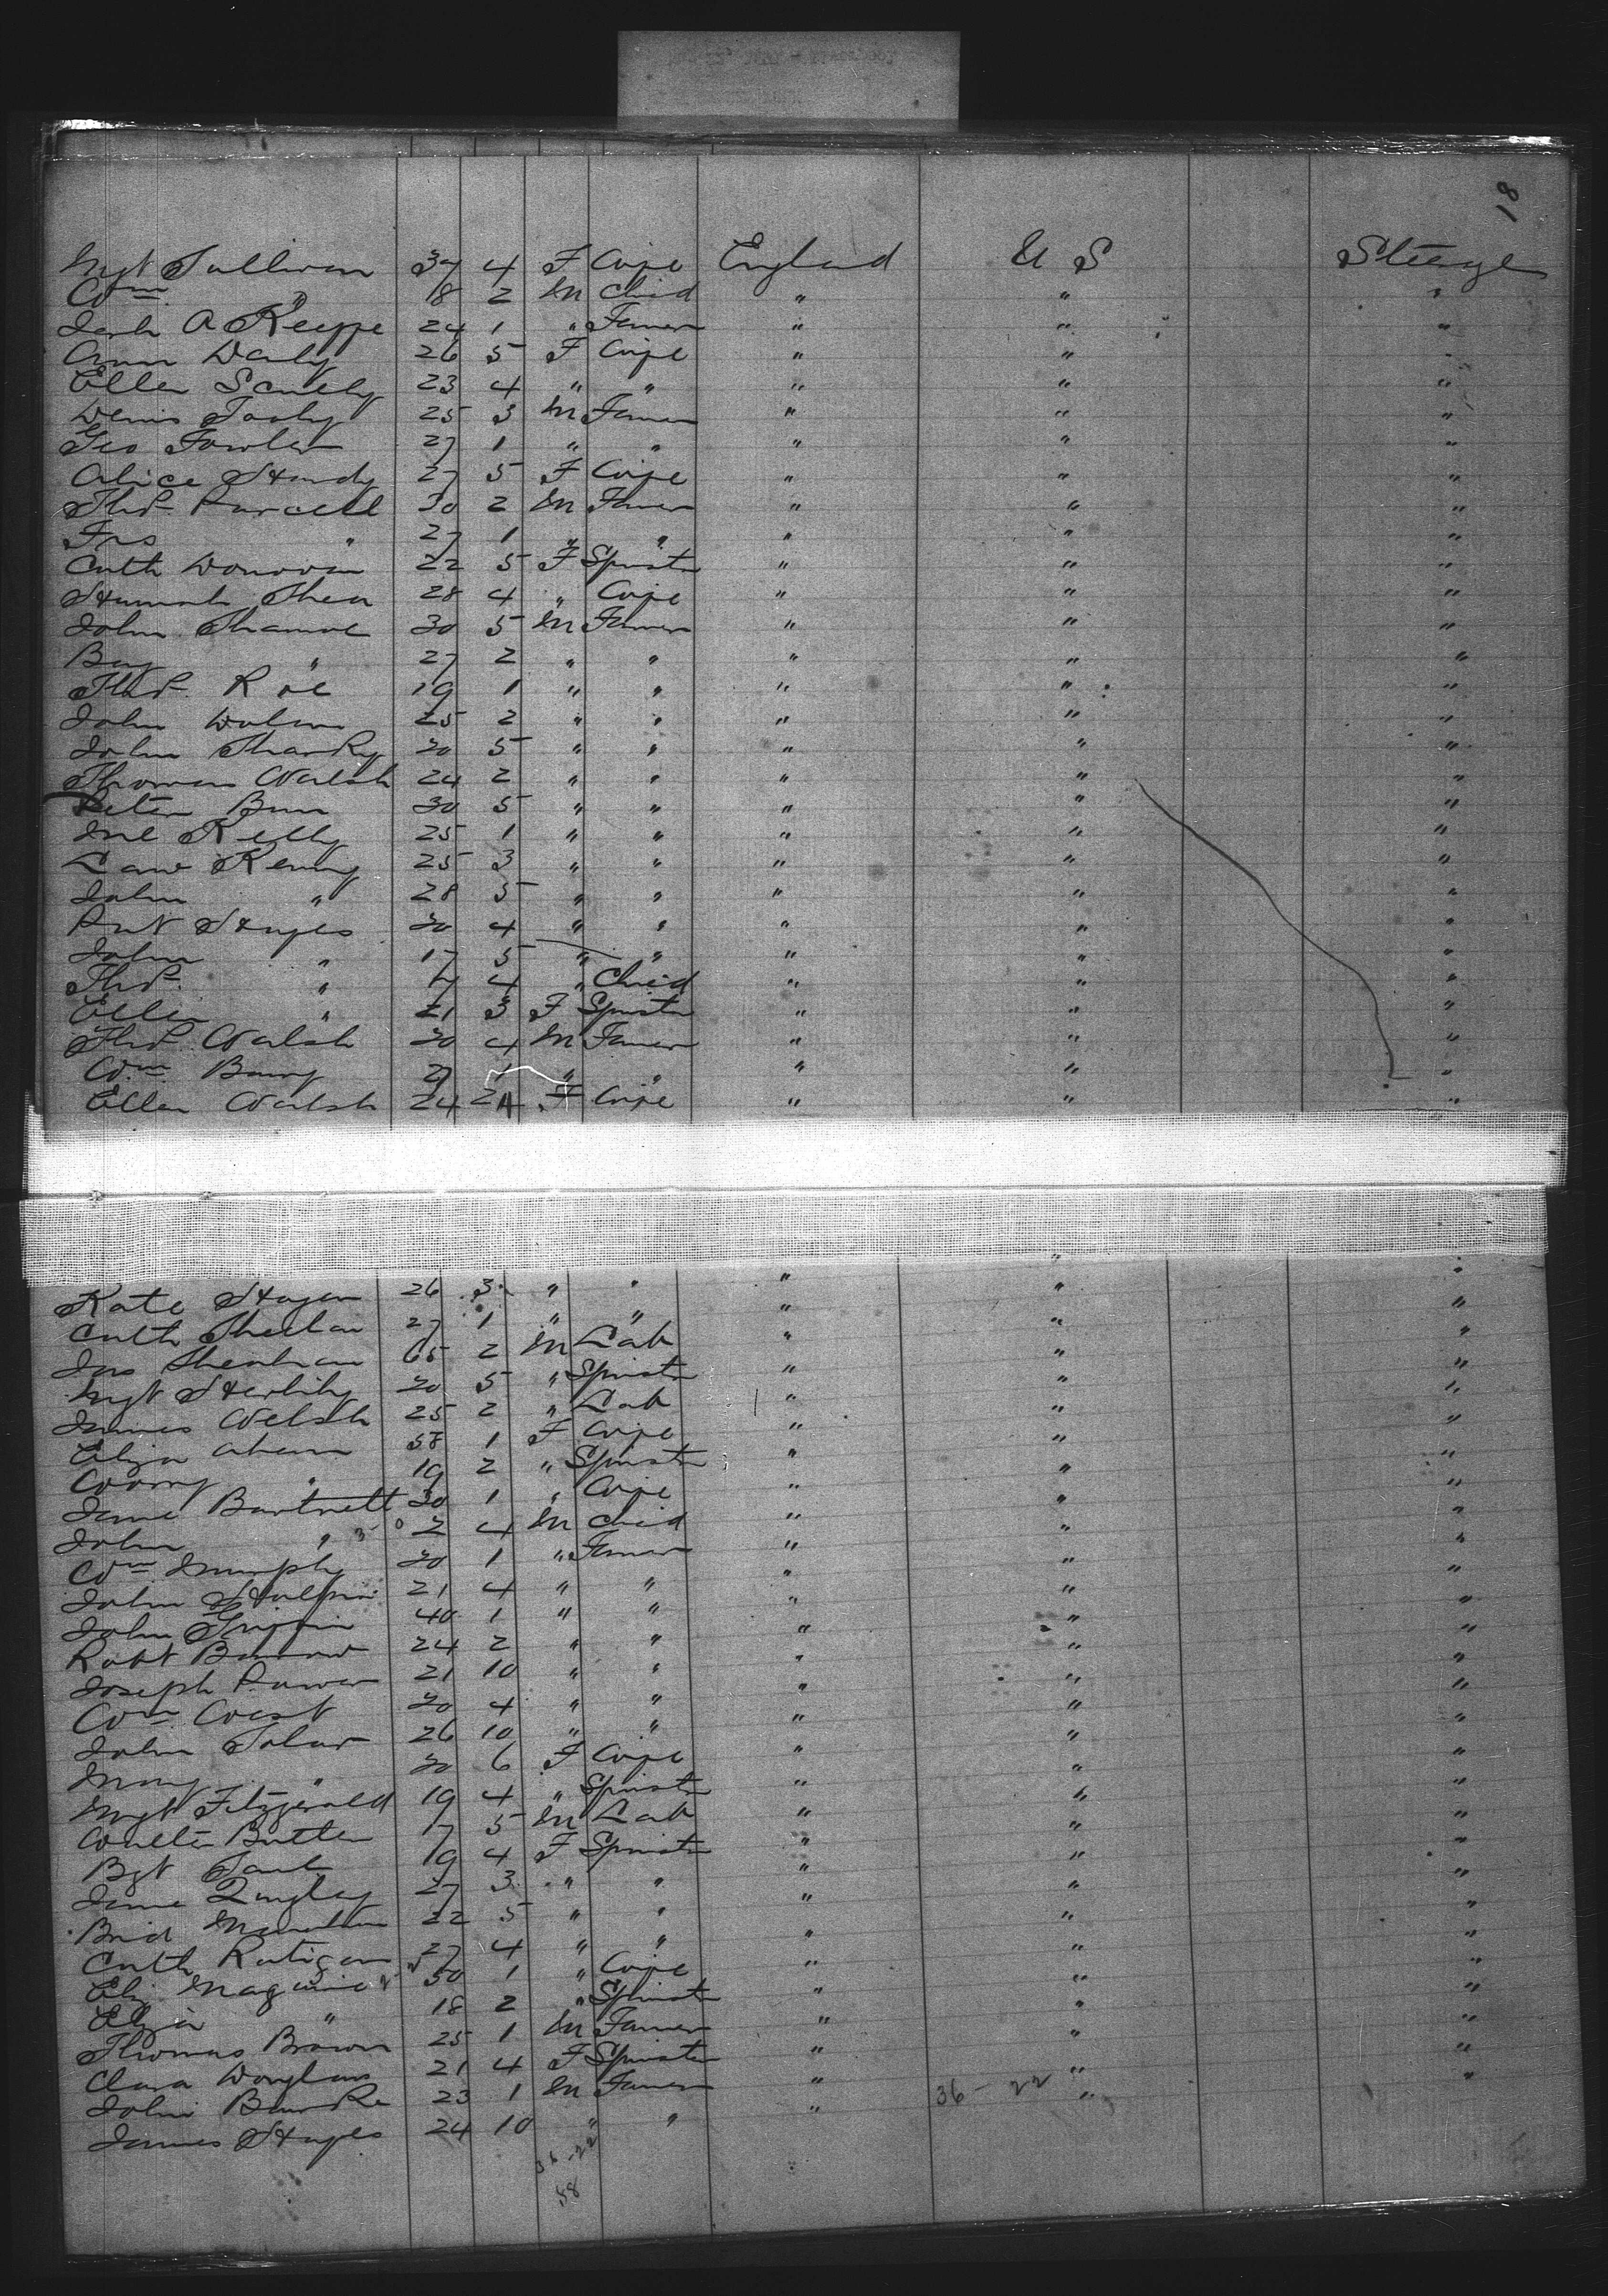 18
Mgt Sullivan 37 4 F Wife England U S Steerage
Wm " 18 2 M Child " " "
A Keeffe 24 1 " Farmer " " "
Ann Daily 26 5 F Wife " " "
Ellen Scully 23 4 " " " " "
Denis 25 3 M Farmer " " "
Geo Fowler 27 1 " " " " "
Alice Handy 27 5 F Wife " " "
Thos Purcell 30 2 M Farmer " " "
Frs " 27 1 " " " " "
Cath Donovan 22 5 F Spinster " " "
Hannah Shea 28 4 " Wife " " "
John 30 5 M Farmer " " "
" 27 2 " " " " "
Thos Roe 19 1 " " " " "
John 25 2 " " " " "
John Sharky 20 5 " " " " "
Thomas Walsh 24 2 " " " " "
Peter 30 5 " " " " "
Ml Kelly 25 1 " " " " "
Law Kenny 25 3 " " " " "
John " 28 5 " " " " "
Pat Hayes 20 4 " " " " "
John " 17 5 " " " " "
Thos " 4 " Child " " "
Ellen " 21 3 F Spinster " " "
Thos Walsh 20 4 M Farmer " " "
Wm Barry 27 1 " " " " "
Ellen Walsh 24 F Wife " " "
" "
Kate Hayes 26 3 " " " " "
Cath Sheehan 27 1 " " " " "
Jas Sheehan 65 2 M Lab " " "
Mgt Herlihy 20 5 " Spinster " " "
James Welsh 25 2 " Lab " " "
Eliza Ahern 58 1 F Wife " " "
" 19 2 " Spinster " " "
Jane Bartnett 30 1 " Wife " " "
John " 2 4 M Child " " "
Wm Murphy 20 1 " Farmer " " "
John Halpin 21 4 " " " " "
John Griffin 40 1 " " " " "
Robt 24 2 " " " " "
Joseph Power 21 10 " " " " "
Wm West 20 4 " " " " "
John 26 10 " " " " "
Mary " 20 6 F Wife " " "
Mgt Fitzgerald 19 4 " Spinster " " "
Walter Butler 17 5 M Lab " " "
Bgt 19 4 F Spinster " " "
Jane Quigley 27 3 " " " " "
Brid 22 5 " " " " "
Cath Ratigan 27 4 " " " " "
Eliz Maguire 50 1 " Wife " " "
Eliza " 18 2 " Spinster " " "
Thomas Brown 25 1 M Farmer " " "
Clara Douglas 21 4 F Spinster " " "
John Burke 23 1 M Farmer " " "
James Hayes 24 10 " " " 36 - 22 "
36 - 22
58